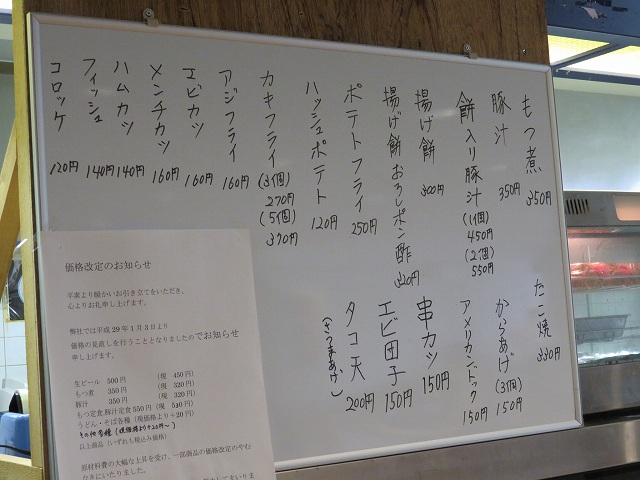 もつ煮 350円
豚汁 350円
餅入り豚汁 (1個) 450円 (2個) 550円
揚げ餅 300円
揚げ餅おろしポン酢 320円
ポテトフライ 250円
ハッシュポテト 120円
カキフライ (3個) 270円 (5個) 370円
アジフライ 160円
エビカツ 160円
メンチカツ 160円
ハムカツ 140円
フィッシュ 140円
コロッケ 120円
たこ焼 330円
からあげ(3個) 150円
アメリカンドック 150円
串カツ 150円
エビ団子 150円
タコ天 200円
(さつまあげ)
価格改定のお知らせ
平素より暖かいお引き立てをいただき、
心よりお礼申し上げます。
弊社では平成29年1月3日より
価格の見直しを行うこととなりましたのでお知らせ
申し上げます。
生ビール 500円 (現 450円)
もつ煮 350円 (現 320円)
豚汁 350円 (現 320円)
もつ定食,豚汁定食 550円 (現 530円)
うどん・そば各種 (現価格より+20円)
その他各種 (現価格より+20円〜)
以上商品 (いずれも税込み価格)
原材料費の大幅な上昇を受け、一部商品の価格改定のやむ
なきにいたりました。